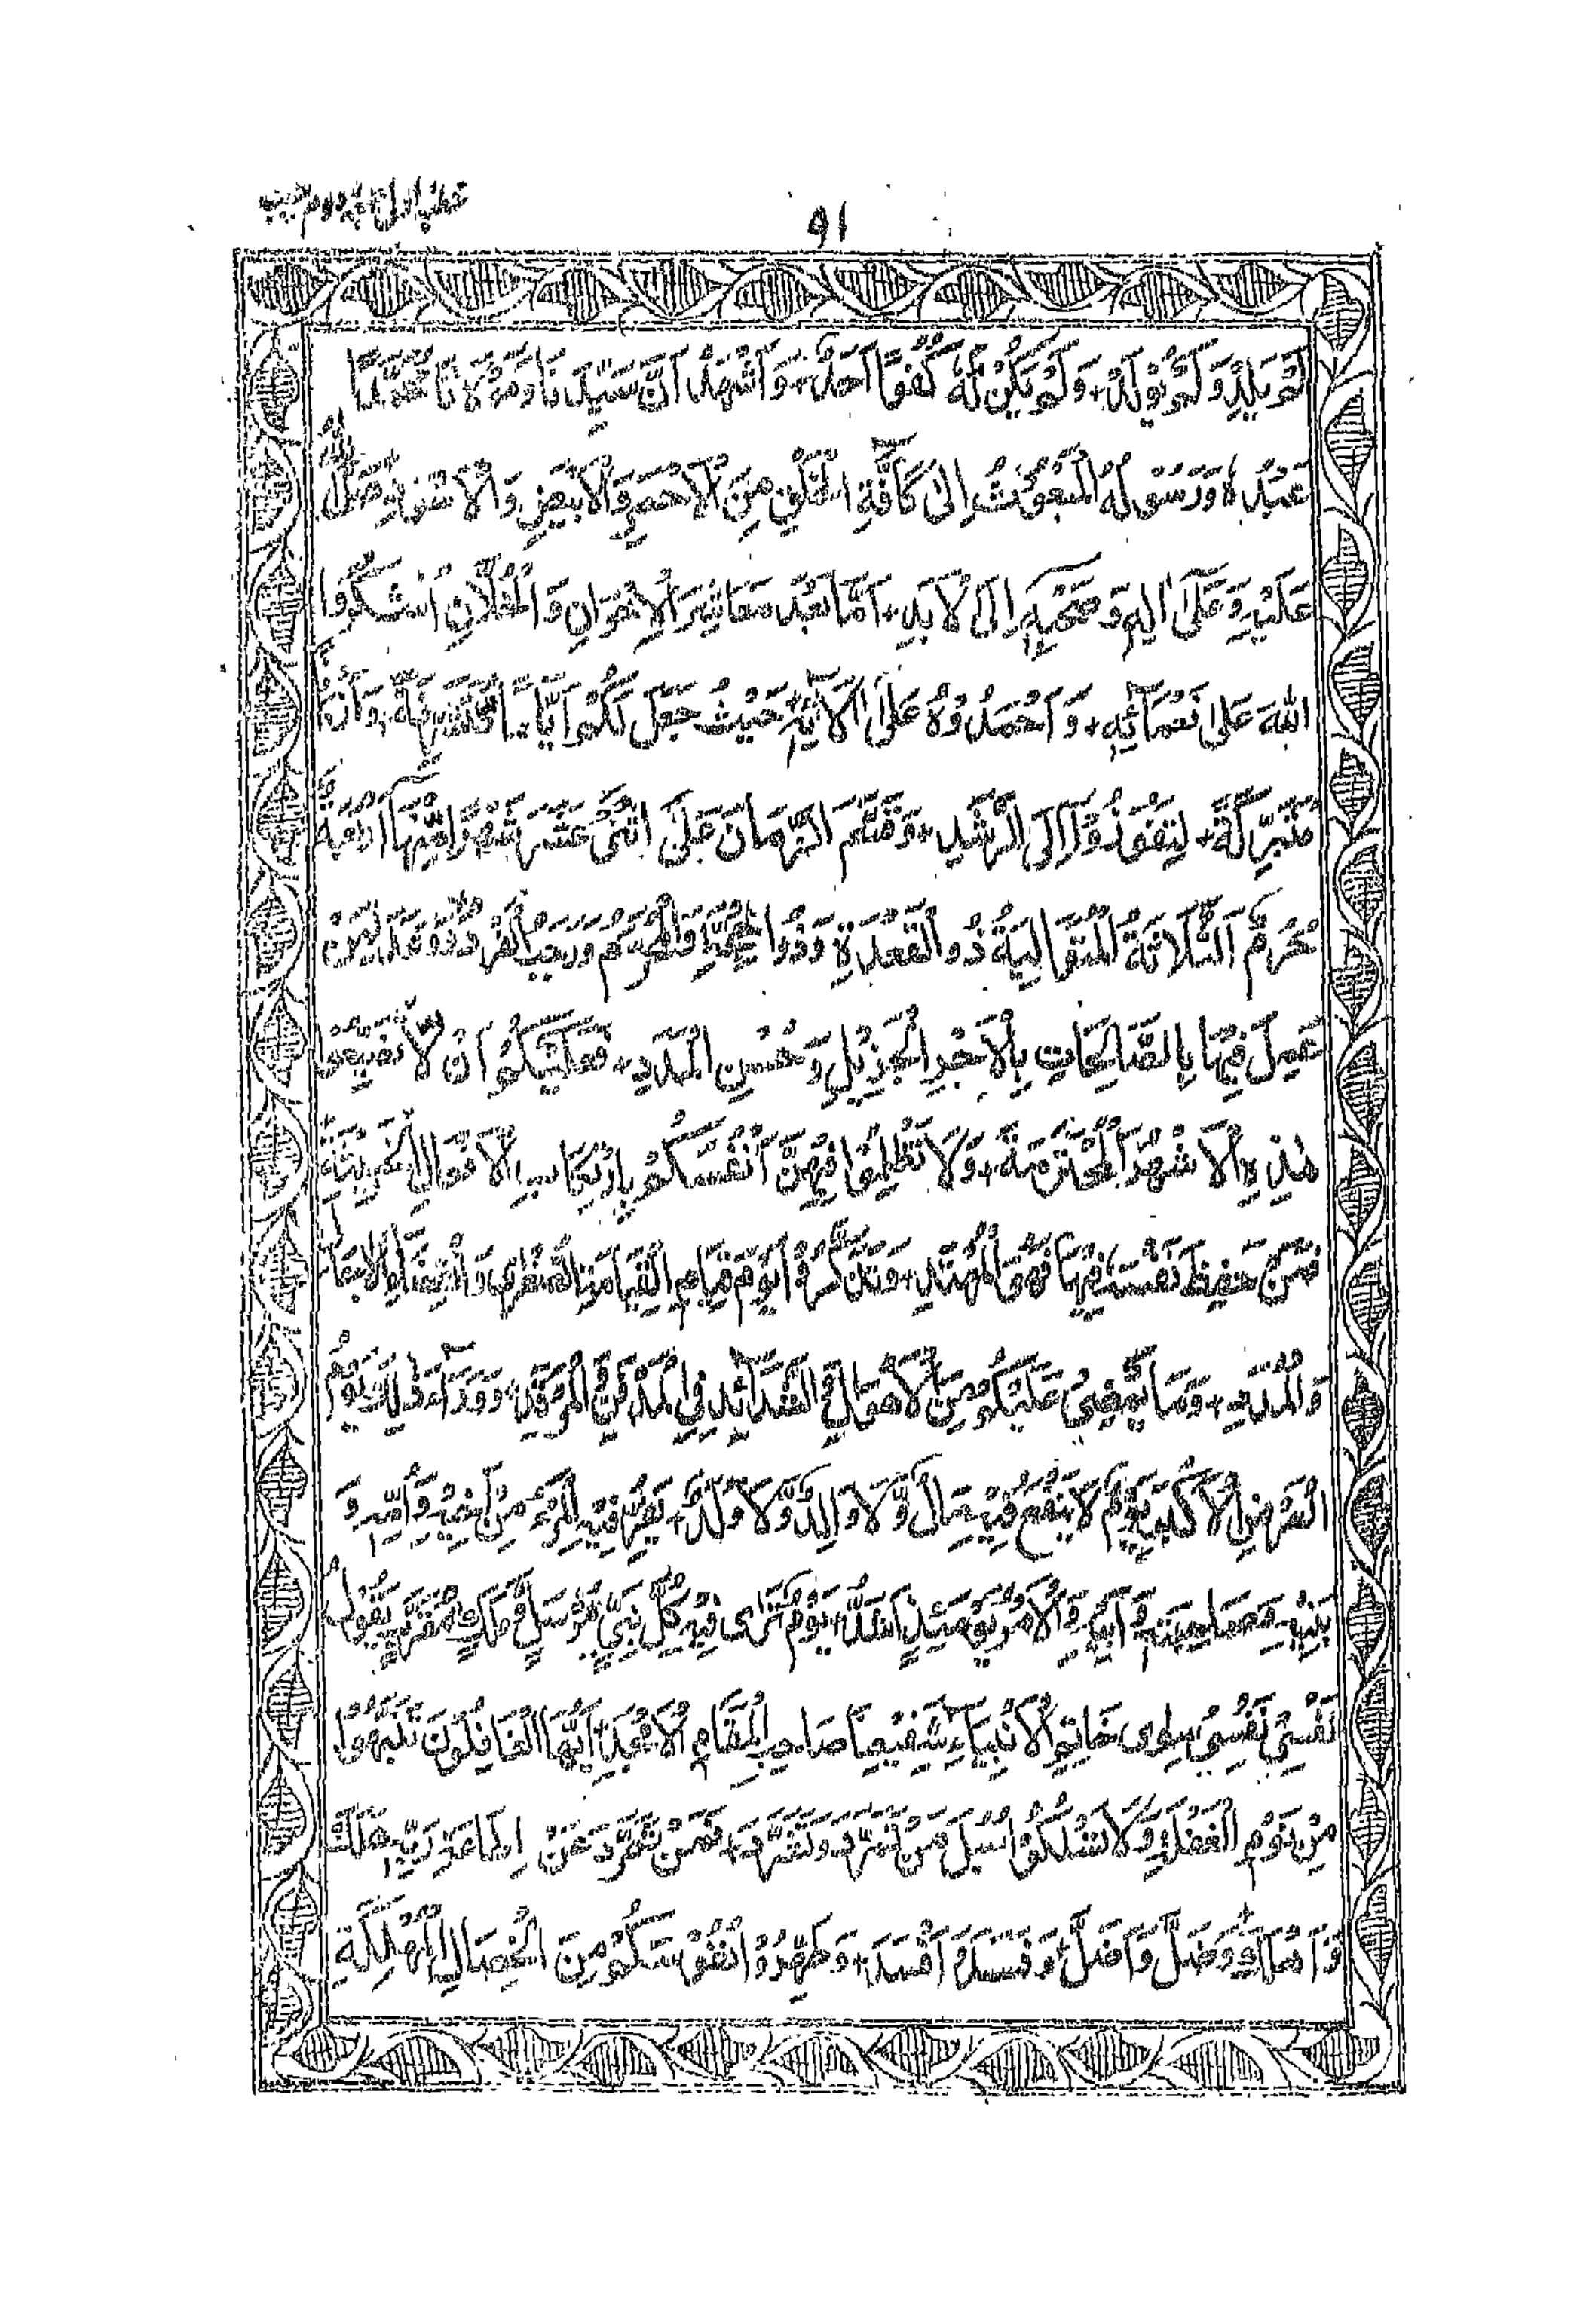 ۹۱
لَمْ يَلِدْ وَلَمْ يُوْلَدْ وَلَمْ يَكُنْ لَهٗ كُفُوًا اَحَدٌ وَاَشْهَدُ اَنَّ سَيِّدَنَا وَمَوْلَانَا مُحَمَّدًا
عَبْدُهٗ وَرَسُوْلُهُ الْمَبْعُوْثُ اِلٰى كَافَّةِ الْخَلْقِ مِنَ الْاَحْمَرِ وَالْاَبْيَضِ وَالْاَسْوَدِ صَلَّى اللّٰهُ
عَلَيْهِ وَعَلٰى اٰلِهٖ وَصَحْبِهٖ اِلَى الْاَبَدِ اَمَّا بَعْدُ مَعَاشِرَ الْاِخْوَانِ وَالْخُلَّانِ اُشْكُرُوا
اللهَ عَلٰى نَعْمَائِهٖ وَاحْمَدُوْهُ عَلٰى اٰلَائِهٖ حَيْثُ جَعَلَ لَكُمْ اَيَّامًا وَاَزْمِنَةً
مُتَبَرِّكَةً لِتَفُوْزُوْا اِلَى الرَّشَدِ وَقَسَّمَ الزَّمَانَ عَلٰى اثْنَيْ عَشَرَ شَهْرًا مِنْهَا اَرْبَعَةٌ
حُرُمٌ اَلثَّلَاثَةُ الْمُتَوَالِيَةُ ذُو الْقَعْدَةِ وَذُو الْحِجَّةِ وَالْمُحَرَّمُ وَرَجَبُ الْفَرْدُ وَوَعَدَ لِمَنْ
عَمِلَ فِيْهَا بِالصَّالِحَاتِ بِالْاَجْرِ الْجَزِيْلِ وَحُسْنِ الْمَدَدِ فَعَلَيْكُمْ اَنْ لَا تُضَيِّعُوْا
هٰذِهِ الْاَشْهُرَ الْمُحْتَرَمَةَ وَلَا تَظْلِمُوْا فِيْهِنَّ اَنْفُسَكُمْ بِارْتِكَابِ الْاَفْعَالِ الْخَبِيْثَةِ
فَمَنْ حَفِظَ نَفْسَهٗ فِيْهَا فَهُوَ الْمُهْتَدِ وَتَذَكَّرُوْا يَوْمَ قِيَامِ الْقِيَامَةِ الصُّغْرٰى وَانْقِضَاءِ الْاٰجَالِ
وَالْمُدَّةِ وَمَا يَمْضِيْ عَلَيْكُمْ مِنَ الْاَهْوَالِ وَالشَّدَائِدِ فِي الْمَدْفَنِ وَالْمَرْقَدِ وَوَرَاءَ ذٰلِكَ يَوْمُ
الْعَرْضِ الْاَكْبَرِ يَوْمٌ لَا يَنْفَعُ فِيْهِ مَالٌ وَّلَا وَالِدٌ وَّلَا وَلَدٌ يَفِرُّ فِيْهِ الْمَرْءُ مِنْ اَخِيْهِ وَاُمِّهٖ وَ
بَنِيْهِ وَصَاحِبَتِهٖ وَاَبِيْهِ وَالْاَمْرُ يَوْمَئِذٍ اَشَدُّ يَوْمٌ تَرٰى فِيْهِ كُلَّ نَبِيٍّ مُرْسَلٍ وَمَلَكٍ مُقَرَّبٍ يَقُوْلُ
نَفْسِيْ نَفْسِيْ سِوٰى خَاتَمِ الْاَنْبِيَاءِ شَفِيْعِنَا صَاحِبِ الْمَقَامِ الْاَمْجَدِ اَيُّهَا الْغَافِلُوْنَ تَنَبَّهُوْا
مِنْ نَوْمِ الْغَفْلَةِ وَلَا تَسْلُكُوْا سُبُلَ مَنْ تَمَرَّدَ وَتَفَرَّدَ فَمَنْ تَمَرَّدَ عَنْ اِطَاعَةِ رَبِّهٖ هَلَكَ
وَاَهْلَكَ وَضَلَّ وَاَضَلَّ وَفَسَدَ وَاَفْسَدَ وَطَهِّرُوْا نُفُوْسَكُمْ مِنَ الْخِصَالِ الْمُهْلِكَةِ